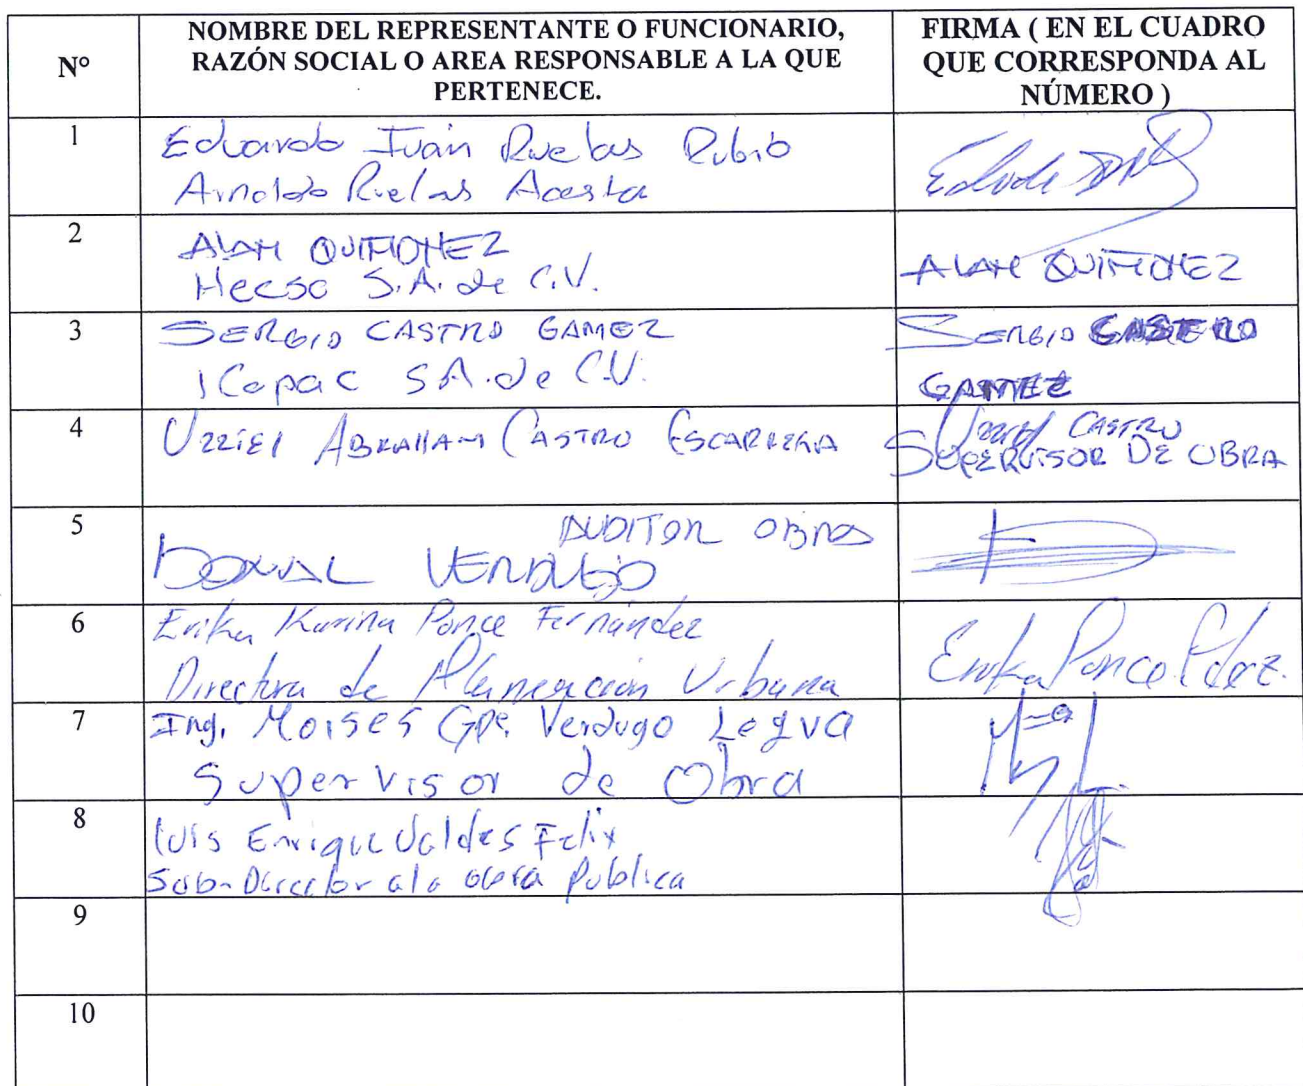 N°
NOMBRE DEL REPRESENTANTE O FUNCIONARIO,
RAZÓN SOCIAL O AREA RESPONSABLE A LA QUE
PERTENECE.
FIRMA ( EN EL CUADRO
QUE CORRESPONDA AL
NÚMERO )
1
Eduardo Iván Ruelas Rubio
Arnoldo Ruelas Acosta
2
ALAN QUIÑONEZ
Hecso S.A. de C.V.
ALAN QUIÑONEZ
3
SERGIO CASTRO GAMEZ
ICopac SA. de C.V.
SERGIO CASTRO
GAMEZ
4
UZZIEL ABRAHAM CASTRO ESCARREGA
UZZIEL CASTRO
SUPERVISOR DE OBRA
5
AUDITOR OBRAS
DONAL VERDUGO
6
Erika Karina Ponce Fernández
Directora de Planeación Urbana
Erika Ponce Fdez.
7
Ing. Moises Gpe. Verdugo Leyva
Supervisor de Obra
8
Luis Enrique Valdes Felix
Sub-Director obra Publica
9
10